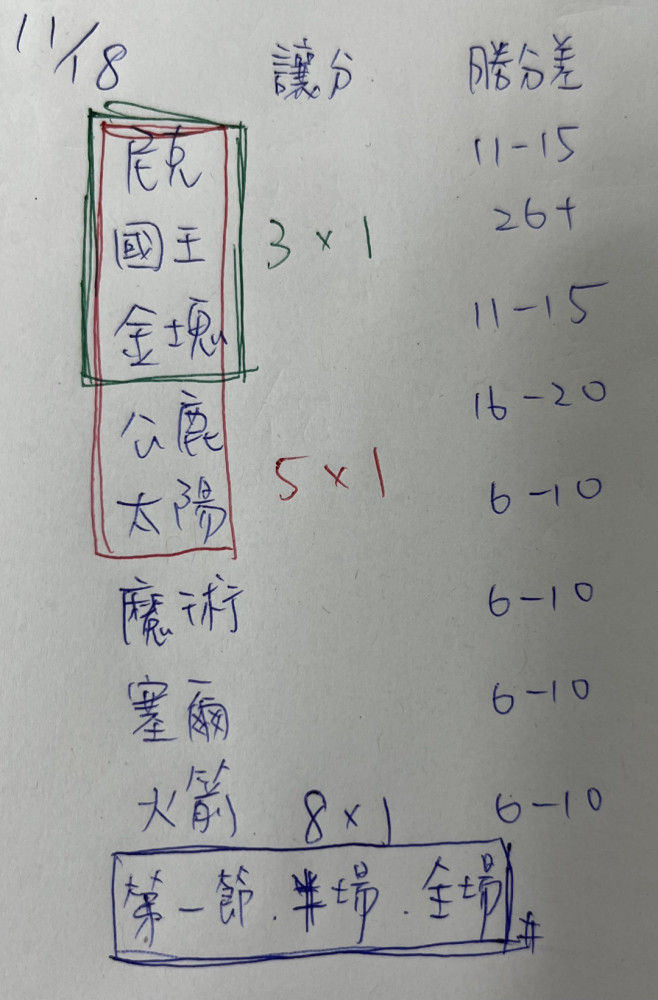 11/18 讓分 勝分差
尼克 11-15
國王 3×1 26+
金塊 11-15
公鹿 16-20
太陽 5×1 6-10
魔術 6-10
塞爾 6-10
火箭 8×1 6-10
第一節.半場.全場#